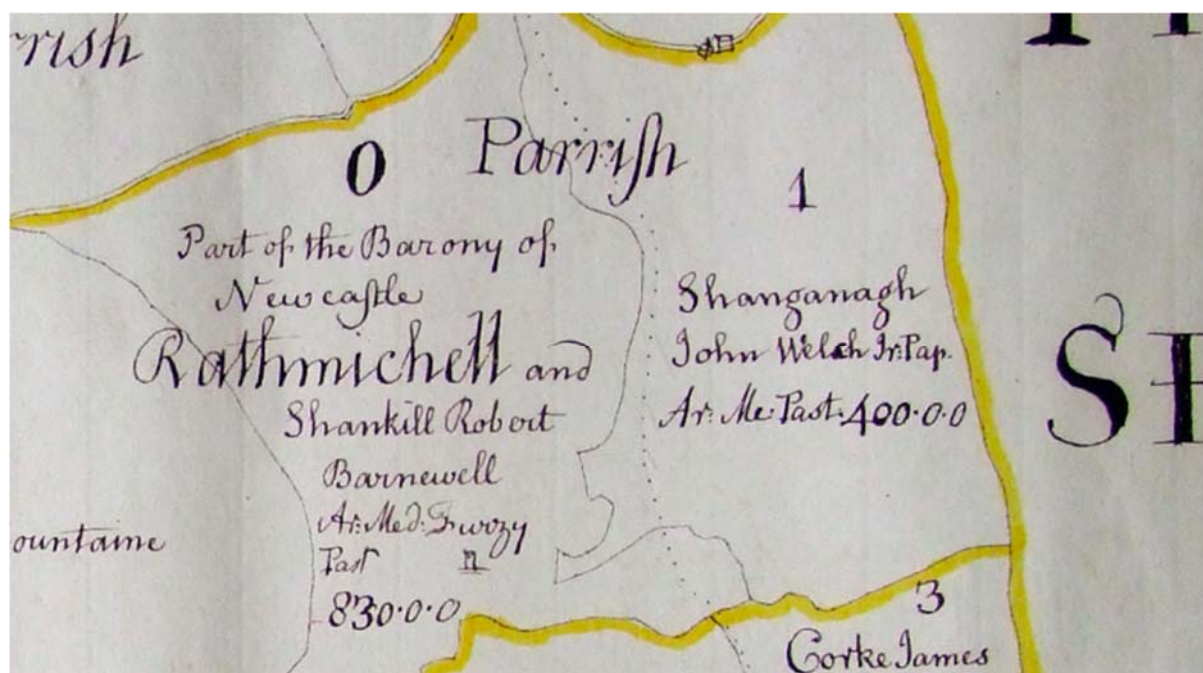 rrish
0 Parrish 1
Part of the Barony of
Newcastle
Rathmichell and
Shankill Robert
Barnewell
Ar: Med: Furzy
Past
830·0·0
Shanganagh
John Welch Ir: Pap.
Ar: Me: Past: 400·0·0
ountaine
3
Corke James